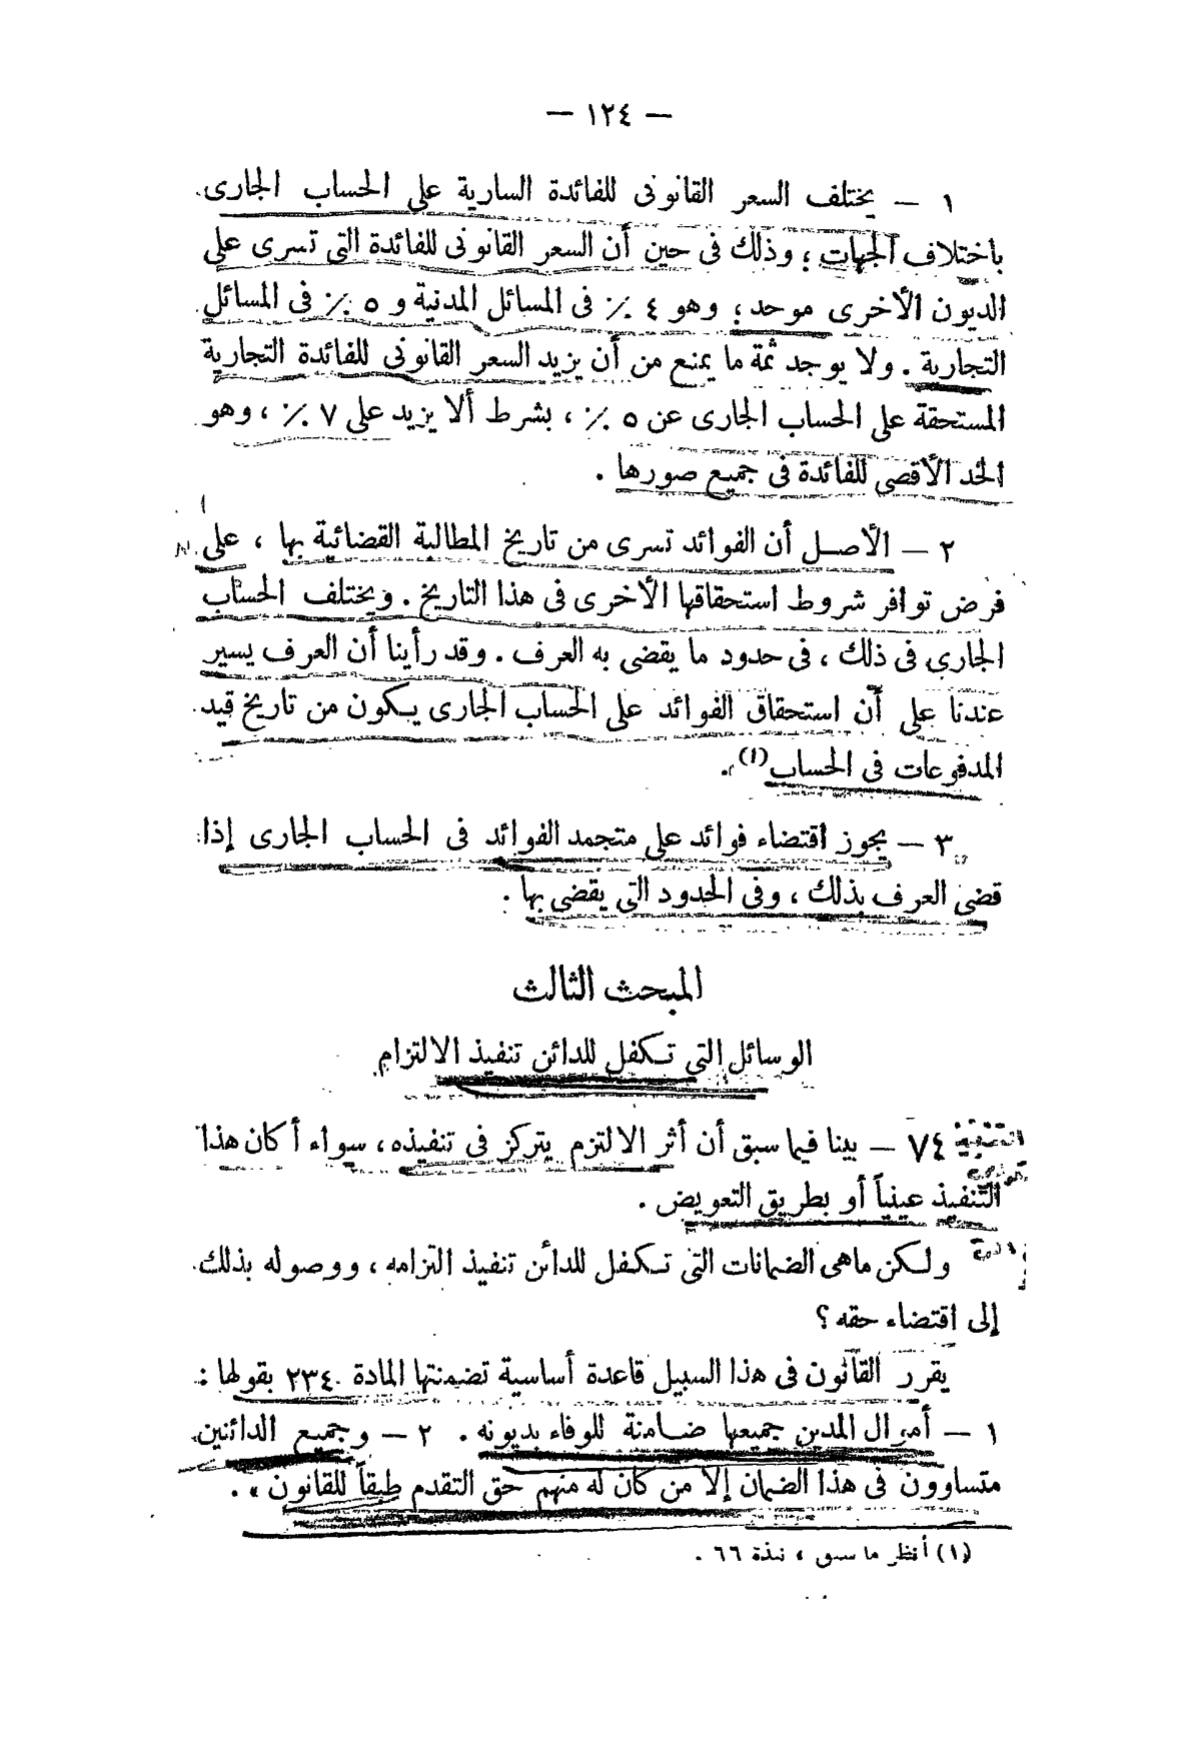 — ١٢٤ —
١ — يختلف السعر القانونى للفائدة السارية على الحساب الجارى
باختلاف الجهات ؛ وذلك فى حين أن السعر القانونى للفائدة التى تسرى على
الديون الأخرى موحد ؛ وهو ٤ ٪ فى المسائل المدنية و ٥ ٪ فى المسائل
التجارية . ولا يوجد ثمة ما يمنع من أن يزيد السعر القانونى للفائدة التجارية
المستحقة على الحساب الجارى عن ٥ ٪ ، بشرط ألا يزيد على ٧ ٪ ، وهو
الحد الأقصى للفائدة فى جميع صورها .
٢ — الأصل أن الفوائد تسرى من تاريخ المطالبة القضائية بها ، على
فرض توافر شروط استحقاقها الأخرى فى هذا التاريخ . ويختلف الحساب
الجارى فى ذلك ، فى حدود ما يقضى به العرف . وقد رأينا أن العرف يسير
عندنا على أن استحقاق الفوائد على الحساب الجارى يكون من تاريخ قيد
المدفوعات فى الحساب (١) .
٣ — يجوز اقتضاء فوائد على متجمد الفوائد فى الحساب الجارى إذا
قضى العرف بذلك ، وفى الحدود التى يقضى بها .
المبحث الثالث
الوسائل التى تكفل للدائن تنفيذ الالتزام
٧٤ — بينا فيما سبق أن أثر الالتزم يتركز فى تنفيذه ، سواء أكان هذا
التنفيذ عينياً أو بطريق التعويض .
ولكن ماهى الضمانات التى تكفل للدائن تنفيذ التزامه ، ووصوله بذلك
إلى اقتضاء حقه ؟
يقرر القانون فى هذا السبيل قاعدة أساسية تضمنتها المادة ٢٣٤ بقولها :
١ — أموال المدين جميعها ضامنة للوفاء بديونه . ٢ — وجميع الدائنين
متساوون فى هذا الضمان إلا من كان له منهم حق التقدم طبقاً للقانون » .
(١) أنظر ما سبق ، نبذة ٦٦ .